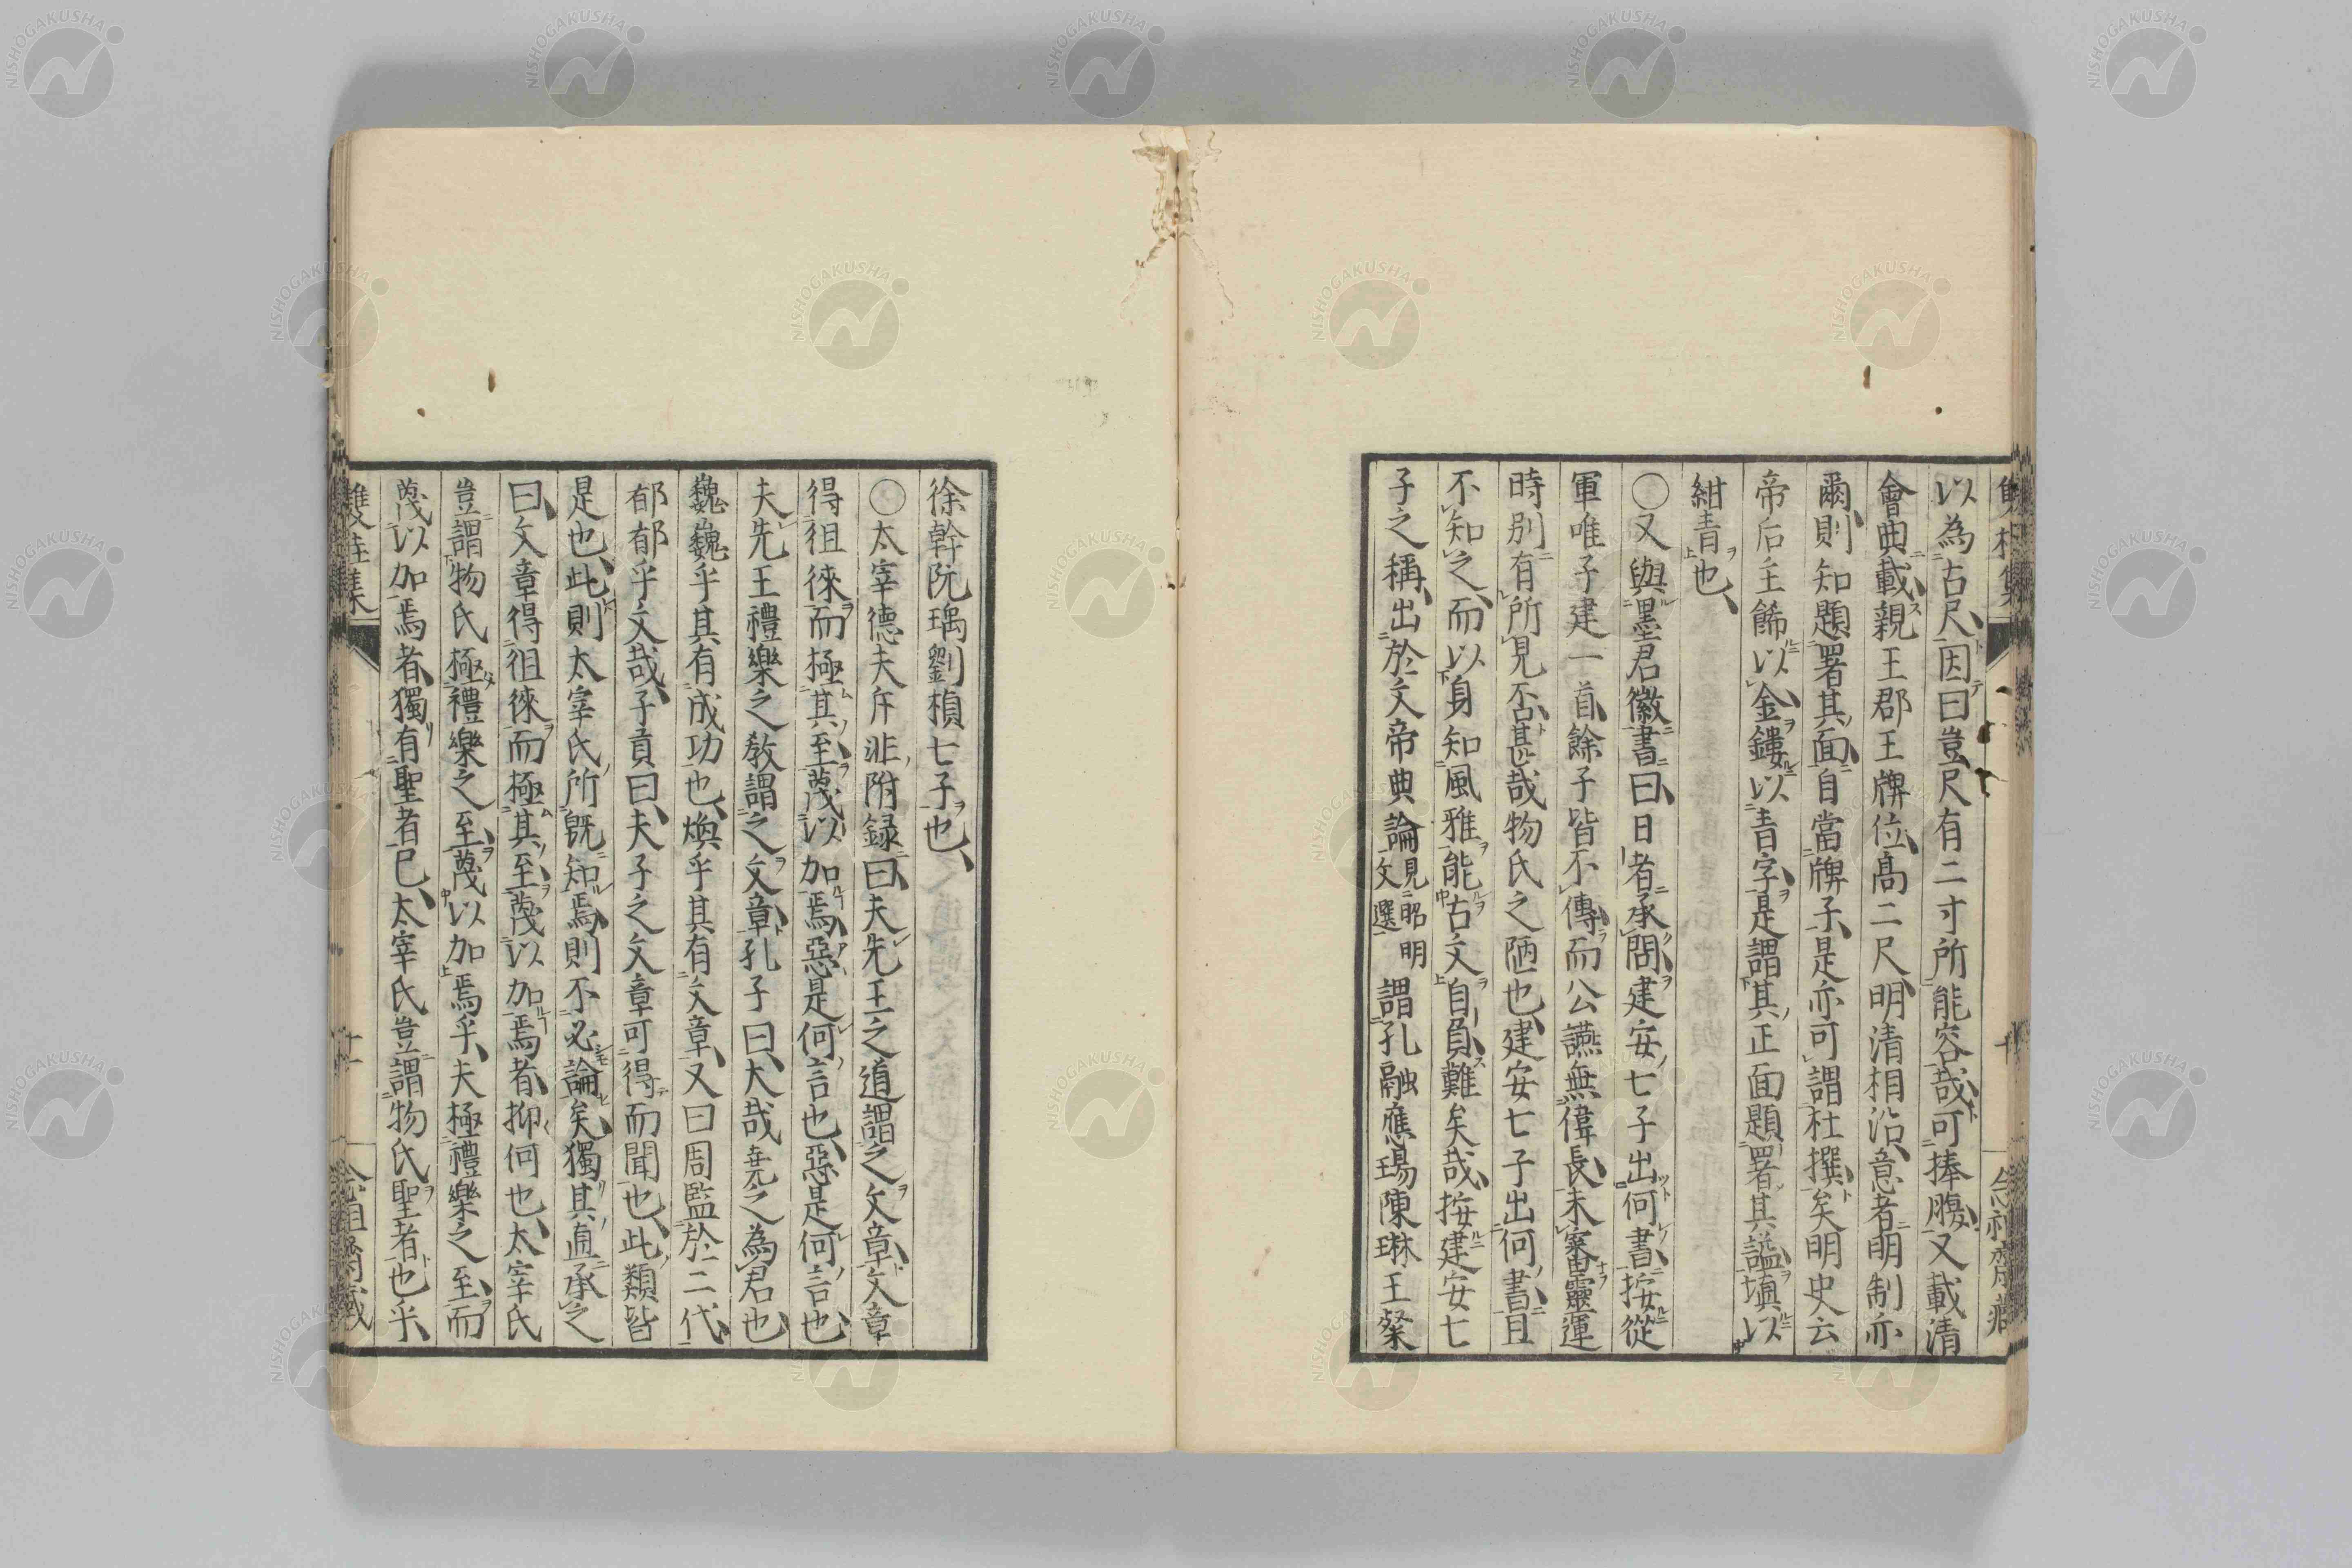 以為古尺因曰豈尺有二寸所能容哉可捧腹又載清
會典載親王郡王牌位高二尺明清相沿意者明制亦
爾則知題署其面自當牌子是亦可謂杜撰矣明史云
帝后主飾以金鏤以青字是謂其正面題署其謚填以
紺青也
〇又與墨君徽書曰日者承問建安七子出何書按從
軍唯子建一首餘子皆不傳而公讌無偉長未審靈運
時別有所見否甚哉物氏之陋也建安七子出何書且
不知之而以身知風雅能古文自負難矣哉按建安七
子之稱出於文帝典論見昭明文選謂孔融應瑒陳琳王粲
徐幹阮瑀劉楨七子也
〇太宰德夫斥非附録曰夫先王之道謂之文章文章
得徂徠而極其至蔑以加焉惡是何言也惡是何言也
夫先王禮樂之教謂之文章孔子曰大哉堯之為君也
巍巍乎其有成功也煥乎其有文章又曰周監於二代
郁郁乎文哉子貢曰夫子之文章可得而聞也此類皆
是也此則太宰氏所既知焉則不必論矣獨其直承之
曰文章得徂徠而極其至蔑以加焉者抑何也太宰氏
豈謂物氏極禮樂之至蔑以加焉乎夫極禮樂之至而
蔑以加焉者獨有聖者已太宰氏豈謂物氏聖者也乎
雙桂集
十一
念祖齋藏
NISHOGAKUSHA